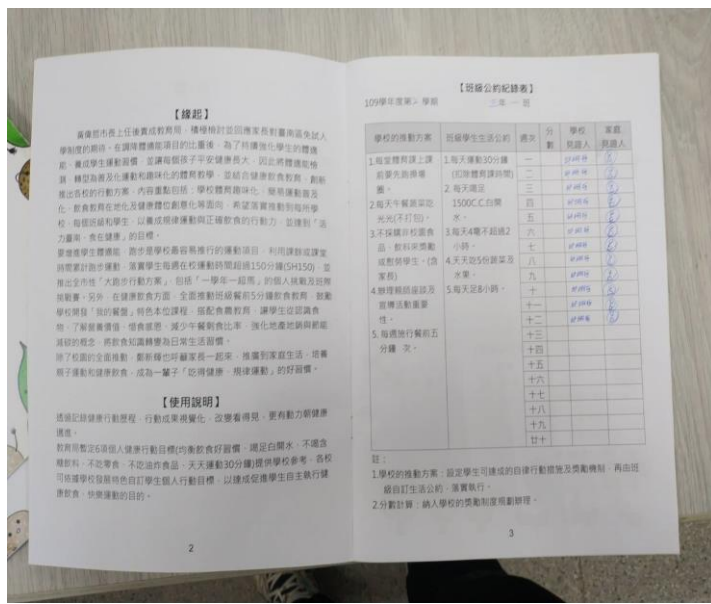 【緣起】
黃偉哲市長上任後責成教育局，積極檢討並回應家長對臺南區免試入
學制度的期待，在調降體適能項目的比重後，為了持續強化學生的體適
能，養成學生運動習慣，並讓每個孩子平安健康長大，因此將體適能檢
測，轉型為普及化運動和趣味化的體育教學，並結合健康飲食教育，創新
推出各校的行動方案，內容重點包括：學校體育趣味化、樂易運動普及
化、飲食教育在地化及健康體位創意化等面向，希望落實推動到每所學
校，每個班級和學生，以養成規律運動與正確飲食的行動力，並達到「活
力臺南，食在健康」的目標。
要增進學生體適能，跑步是學校最容易推行的運動項目，利用課餘或課堂
時間累計跑步運動，落實學生每週在校運動時間超過150分鐘(SH150)，並
推出全市性「大跑步行動方案」，包括「一學年一超馬」的個人挑戰及班際
榮戰賽。另外，在健康飲食方面，全面推動班級餐前5分鐘飲食教育，鼓勵
學校開發「我的餐盤」特色本位課程，搭配食農教育，讓學生從認識食
物，了解營養價值、惜食感恩、減少午餐剩食比率，強化地產地銷與節能
減碳的概念，將飲食知識轉變為日常生活習慣。
除了校園的全面推動，鄭新輝也呼籲家長一起來，推廣到家庭生活，培養
親子運動和健康飲食，成為一輩子「吃得健康、規律運動」的好習慣。
【使用說明】
透過記錄健康行動歷程，行動成果視覺化，改變看得見，更有動力朝健康
邁進。
教育局暫定6項個人健康行動目標(均衡飲食好習慣、喝足白開水、不喝含
糖飲料、不吃零食、不吃油炸食品、天天運動30分鐘)提供學校參考，各校
可依據學校發展特色自訂學生個人行動目標，以達成促進學生自主執行健
康飲食、快樂運動的目的。
2
【班級公約紀錄表】
109學年度第二學期 三年 一 班
學校的推動方案 班級學生生活公約 週次 分數 學校見證人 家庭見證人
1.每堂體育課上課前要先跑操場 圈。
2.每天午餐蔬菜吃光光(不打包)。
3.不採購非校園食品、飲料來獎勵或慰勞學生。(含家長)
4.辦理親師座談及宣導活動重要性。
5.每週施行餐前五分鐘 次。
1.每天運動30分鐘(扣除體育課時間)
2.每天喝足1500C.C.白開水。
3.每天4電不超過2小時。
4.天天吃5份蔬菜及水果。
5.每天足8小時。
一
二
三
四
五
六
七
八
九
十
十一
十二
十三
十四
十五
十六
十七
十八
十九
廿十
註：
1.學校的推動方案：設定學生可達成的自律行動措施及獎勵機制，再由班
級自訂生活公約，落實執行。
2.分數計算：納入學校的獎勵制度規劃辦理。
3